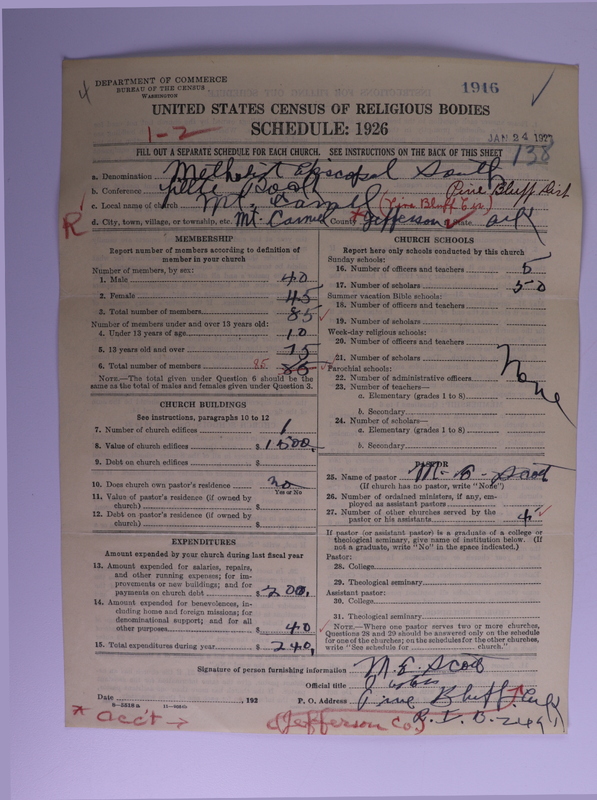 DEPARTMENT OF COMMERCE
BUREAU OF THE CENSUS
WASHINGTON
1916
UNITED STATES CENSUS OF RELIGIOUS BODIES
1-2
SCHEDULE: 1926
JAN 24 1927
138
FILL OUT A SEPARATE SCHEDULE FOR EACH CHURCH. SEE INSTRUCTIONS ON THE BACK OF THIS SHEET
a. Denomination Methodist Episcopal South
b. Conference Little Rock Pine Bluff Dist
c. Local name of church Mt. Carmel (Pine Bluff Cir.)
R
d. City, town, village, or township, etc. Mt. Carmel County * Jefferson State Ark
MEMBERSHIP
Report number of members according to definition of
member in your church
Number of members, by sex:
1. Male 40
2. Female 45
3. Total number of members 85
Number of members under and over 13 years old:
4. Under 13 years of age 10
5. 13 years old and over 75
6. Total number of members 85 85
NOTE.—The total given under Question 6 should be the
same as the total of males and females given under Question 3.
CHURCH BUILDINGS
See instructions, paragraphs 10 to 12
7. Number of church edifices 1
8. Value of church edifices $1500.
9. Debt on church edifices $
10. Does church own pastor's residence? no
Yes or No
11. Value of pastor's residence (if owned by
church) $
12. Debt on pastor's residence (if owned by
church) $
EXPENDITURES
Amount expended by your church during last fiscal year
13. Amount expended for salaries, repairs,
and other running expenses; for im-
provements or new buildings; and for
payments on church debt $200.
14. Amount expended for benevolences, in-
cluding home and foreign missions; for
denominational support; and for all
other purposes $40
15. Total expenditures during year $240.
CHURCH SCHOOLS
Report here only schools conducted by this church
Sunday schools:
16. Number of officers and teachers 5
17. Number of scholars 50
Summer vacation Bible schools:
18. Number of officers and teachers
19. Number of scholars
Week-day religious schools:
20. Number of officers and teachers
21. Number of scholars
None
Parochial schools:
22. Number of administrative officers
23. Number of teachers—
a. Elementary (grades 1 to 8)
b. Secondary
24. Number of scholars—
a. Elementary (grades 1 to 8)
b. Secondary
PASTOR
25. Name of pastor M. E. Scott
(If church has no pastor, write "None")
26. Number of ordained ministers, if any, em-
ployed as assistant pastors
27. Number of other churches served by the
pastor or his assistants 4
If pastor (or assistant pastor) is a graduate of a college or
theological seminary, give name of institution below. (If
not a graduate, write "No" in the space indicated.)
Pastor:
28. College
29. Theological seminary
Assistant pastor:
30. College
31. Theological seminary
NOTE.—Where one pastor serves two or more churches,
Questions 28 and 29 should be answered only on the schedule
for one of the churches; on the schedules for the other churches,
write "See schedule for church."
Signature of person furnishing information M. E. Scott
Official title Pastor
Date , 192
P. O. Address Pine Bluff Ark
8-5518 a
* acc't → (Jefferson Co.)